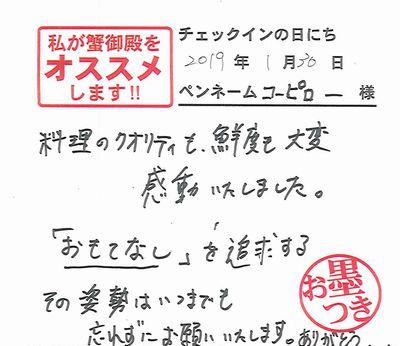 私が蟹御殿を
オススメ
します!!
チェックインの日にち
2019年1月30日
ペンネーム コーピロー 様
料理のクオリティも、鮮度も大変
感動いたしました。
「おもてなし」を追求する
その姿勢はいつまでも
忘れずにお願いいたします。ありがとう
お墨つき